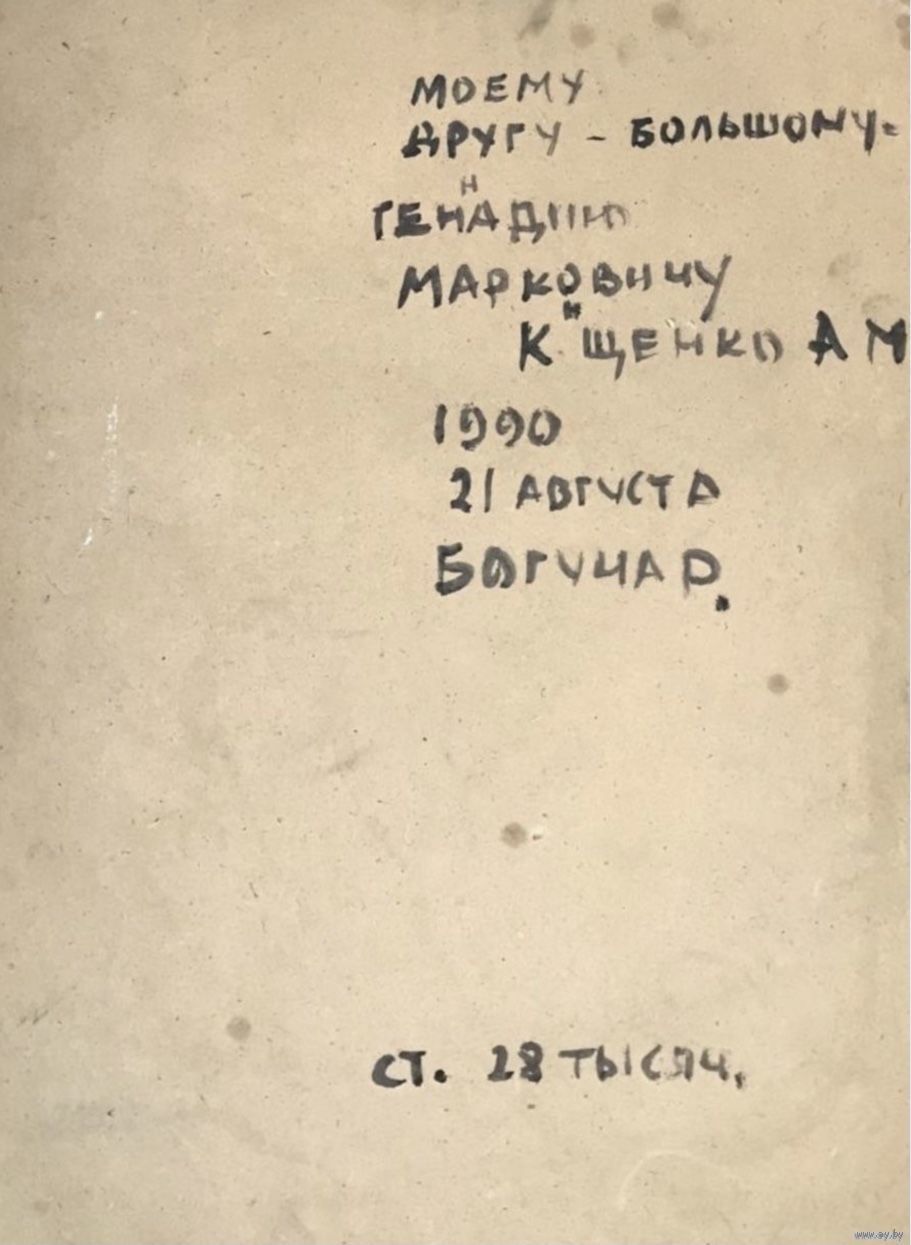 МОЕМУ
ДРУГУ - БОЛЬШОМУ-
ГЕННАДИЮ
МАРКОВИЧУ
КИЩЕНКО А М
1990
21 АВГУСТА
БОГУЧАР.
СТ. 28 ТЫСЯЧ.
www.ay.by